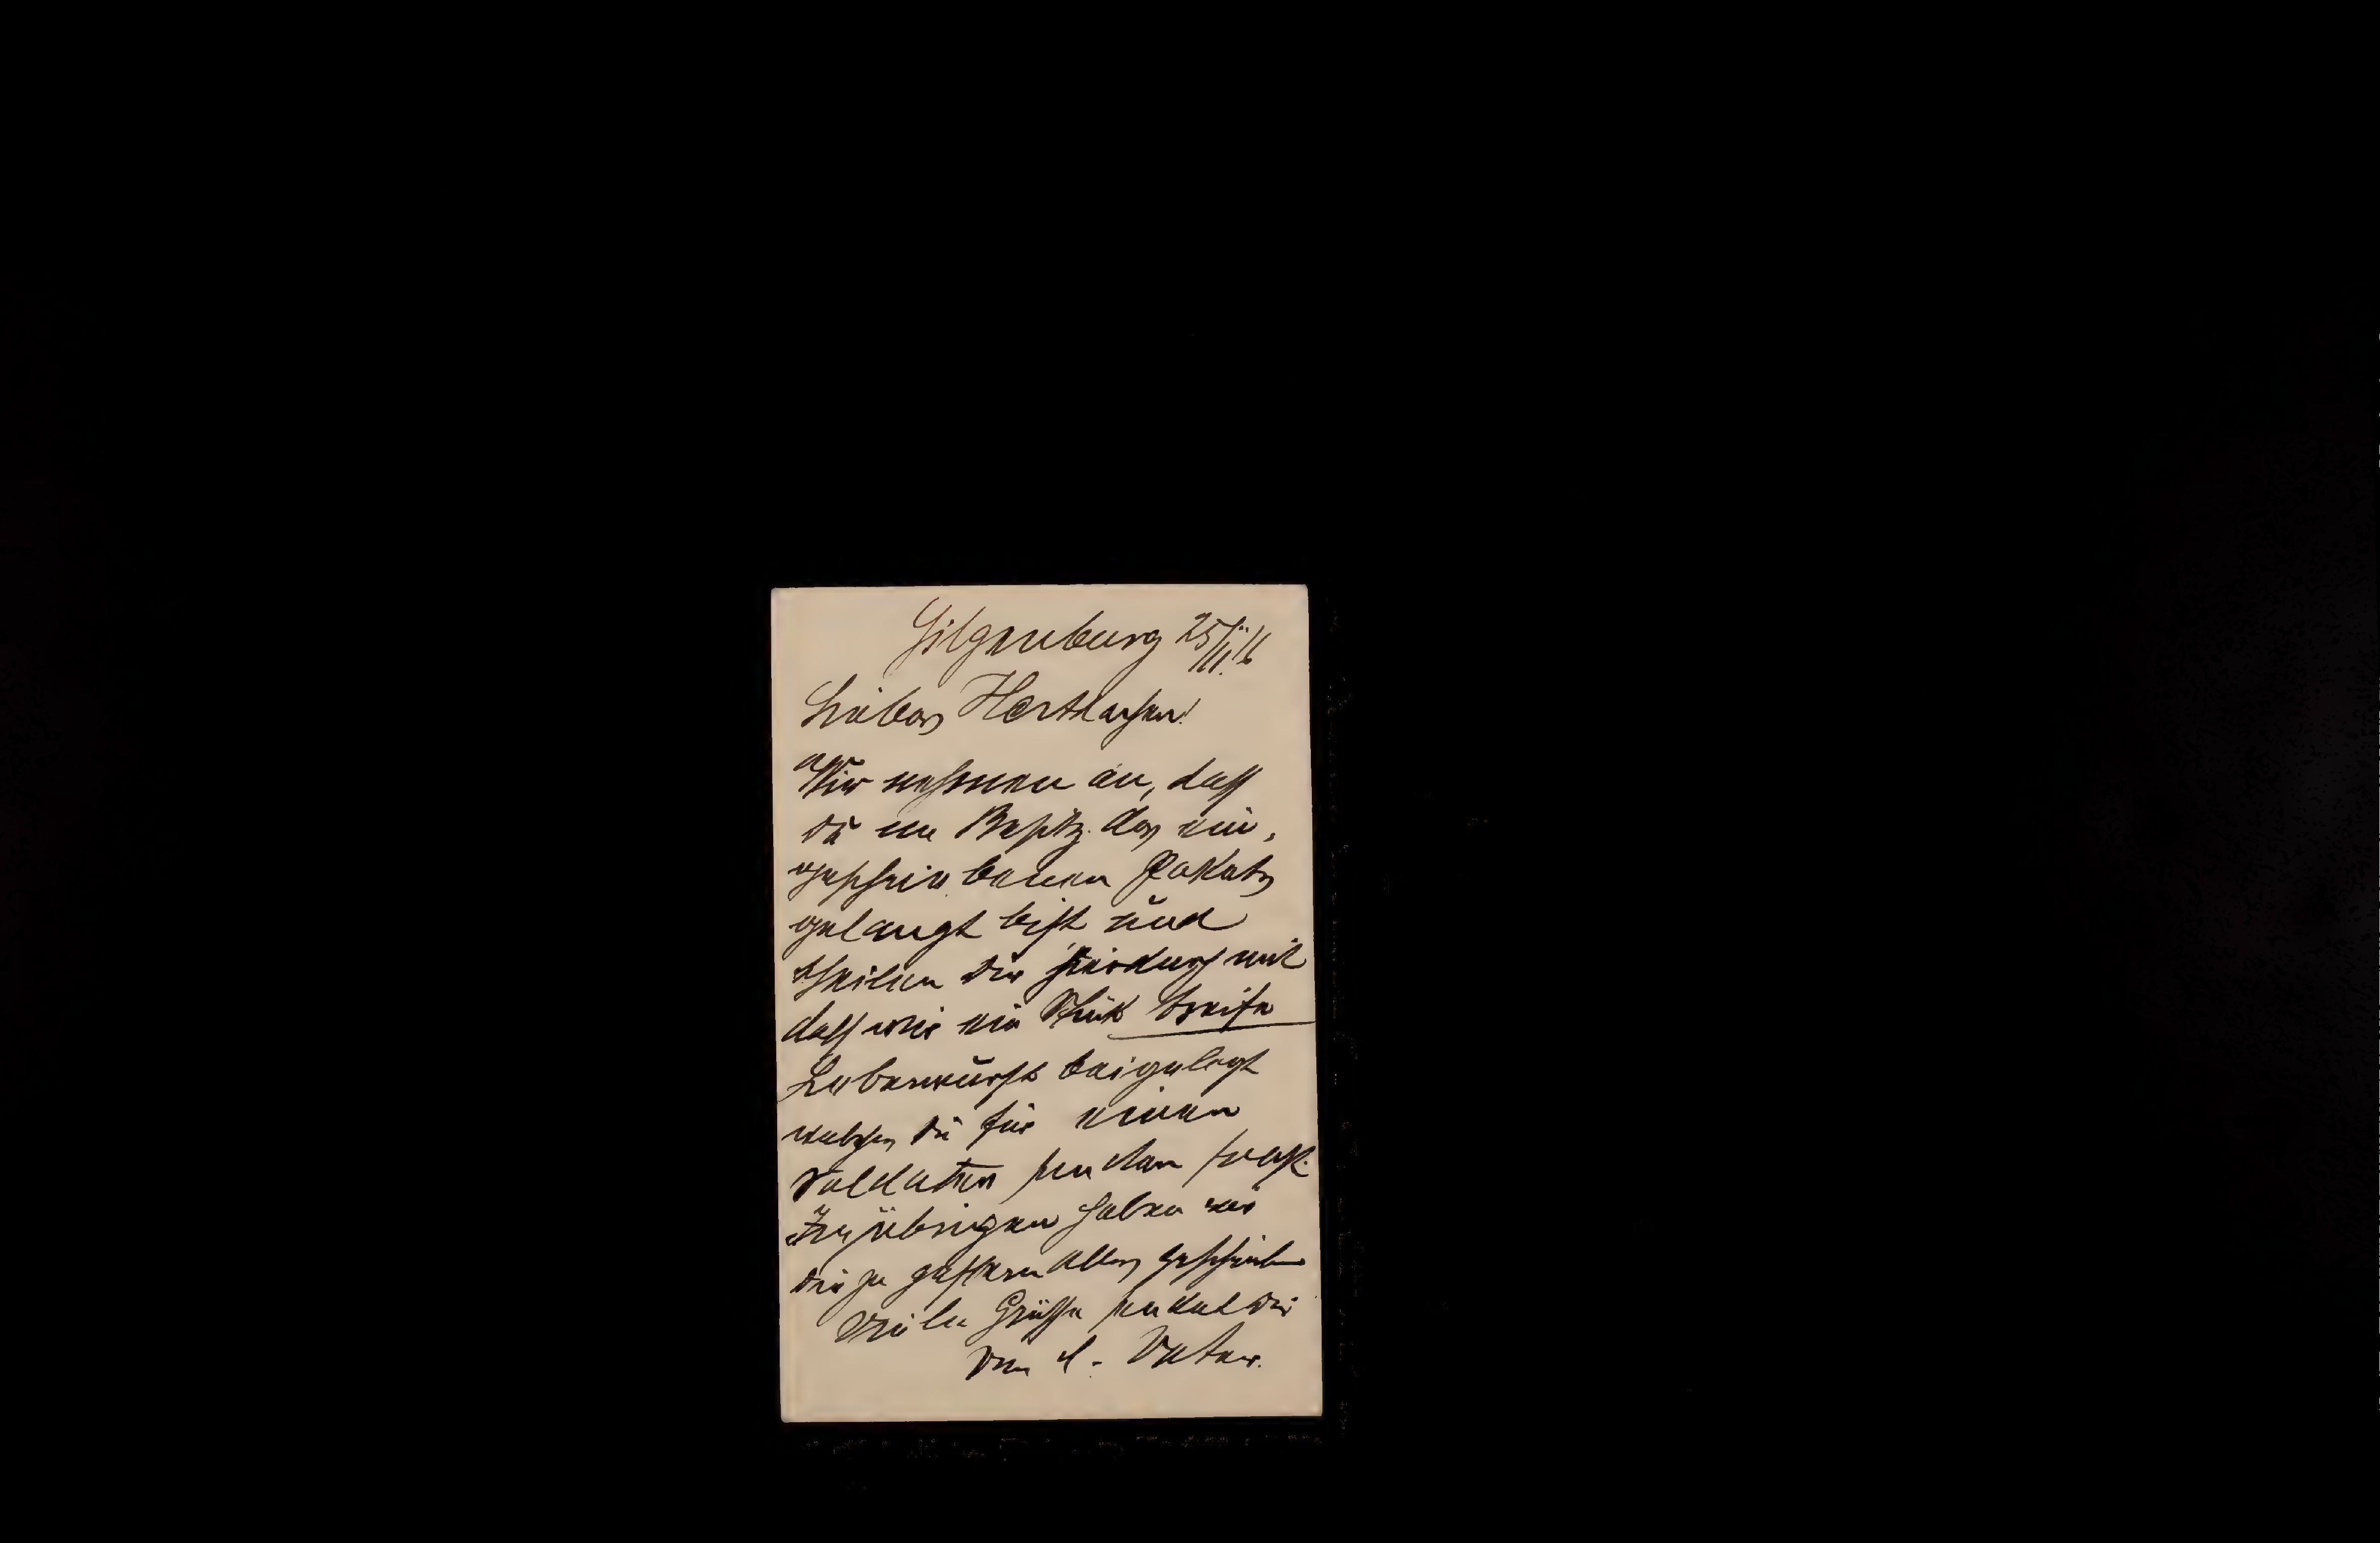 Gilgenburg 25/II.16
Liebes Herthachen!
Wir nehmen an, dass
Du im Besitz des ein-
geschriebenen Pakets
gelangt bist und
theilen Dir hierdurch mit
dass wir ein Stük treife
Leberwurst beigelegt
welches Du für einen
Soldaten senden sollst.
Im übrigen haben wir
Dir ja gestern alles geschrieben
Viele Grüsse sendet Dir
Dein l. Vater.